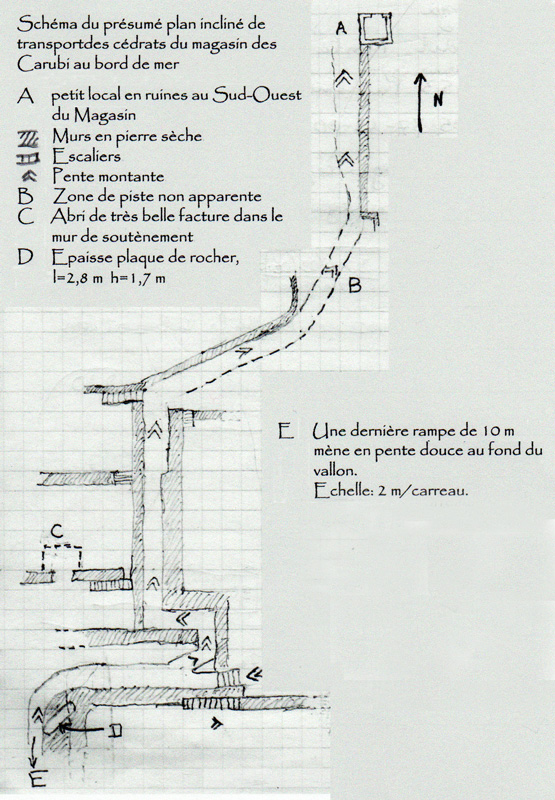 Schéma du présumé plan incliné de
transportdes cédrats du magasin des
Carubi au bord de mer
A petit local en ruines au Sud-Ouest
du Magasin
Murs en pierre sèche
Escaliers
Pente montante
B Zone de piste non apparente
C Abri de très belle facture dans le
mur de soutènement
D Epaisse plaque de rocher,
l=2,8 m h=1,7 m
A
N
B
E Une dernière rampe de 10 m
mène en pente douce au fond du
vallon.
Echelle: 2 m/carreau.
C
D
E